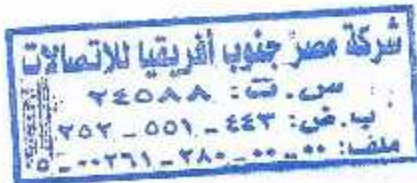 شركة مصر جنوب أفريقيا للاتصالات
س.ت: ٢٤٥٨٨
ب.ض: ٤٤٣ - ٥٥١ - ٢٥٢
ملف: ٠٠ - ٠٠ - ٢٨٠ - ٠٠٢٦١ - ٥